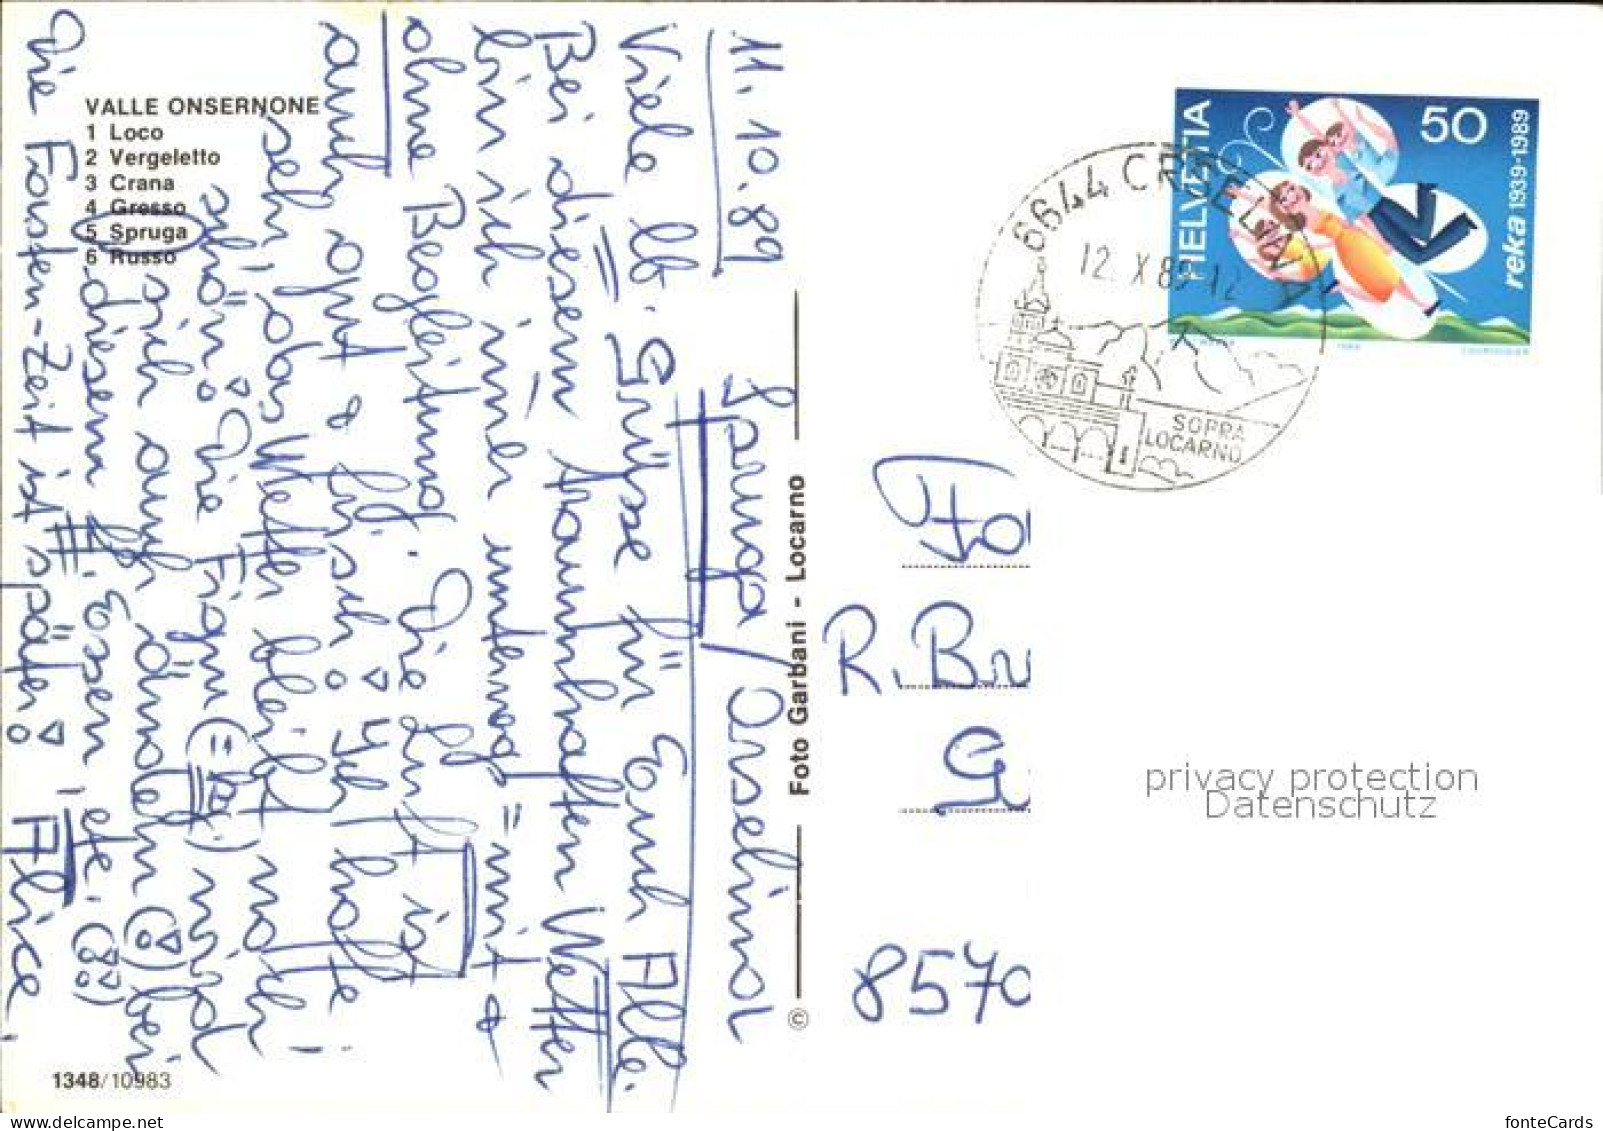 VALLE ONSERNONE
1 Loco
2 Vergeletto
3 Crana
4 Gresso
5 Spruga
6 Russo
11.10.89
Spruga/Orselina
Viele lb. Grüsse für Euch Alle.
Bei diesem traumhaften Wetter
bin ich immer unterweg = mit &
ohne Begleitung. Die Luft ist
auch opt & frisch! Ich hoffe
sehr, das Wetter bleibt noch
schön! Die Figur (= ) wird
sich auch ändern (!) bei
diesem Essen, etc. (!!)
Die Fasten-Zeit ist später! Alice.
Foto Garbani - Locarno
©
1348/10983
HELVETIA
50
reka 1939-1989
6644 ORSELINA
12. X 89 - 12
SOPRA
LOCARNO
R. Bru
8570
privacy protection
Datenschutz
fonteCards